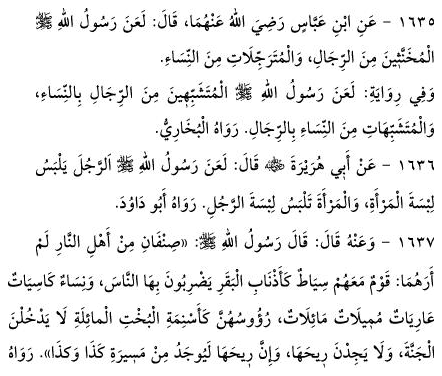 ١٦٣٥ - عَنِ ابْنِ عَبَّاسٍ رَضِيَ اللهُ عَنْهُمَا، قَالَ: لَعَنَ رَسُولُ اللهِ ﷺ
الْمُخَنَّثِينَ مِنَ الرِّجَالِ، وَالْمُتَرَجِّلَاتِ مِنَ النِّسَاءِ.
وَفِي رِوَايَةٍ: لَعَنَ رَسُولُ اللهِ ﷺ الْمُتَشَبِّهِينَ مِنَ الرِّجَالِ بِالنِّسَاءِ،
وَالْمُتَشَبِّهَاتِ مِنَ النِّسَاءِ بِالرِّجَالِ. رَوَاهُ الْبُخَارِيُّ.
١٦٣٦ - عَنْ أَبِي هُرَيْرَةَ ﵁ قَالَ: لَعَنَ رَسُولُ اللهِ ﷺ اَلرَّجُلَ يَلْبَسُ
لِبْسَةَ الْمَرْأَةِ، وَالْمَرْأَةَ تَلْبَسُ لِبْسَةَ الرَّجُلِ. رَوَاهُ أَبُو دَاوُدَ.
١٦٣٧ - وَعَنْهُ قَالَ: قَالَ رَسُولُ اللهِ ﷺ: «صِنْفَانِ مِنْ أَهْلِ النَّارِ لَمْ
أَرَهُمَا: قَوْمٌ مَعَهُمْ سِيَاطٌ كَأَذْنَابِ الْبَقَرِ يَضْرِبُونَ بِهَا النَّاسَ، وَنِسَاءٌ كَاسِيَاتٌ
عَارِيَاتٌ مُمِيلَاتٌ مَائِلَاتٌ، رُؤُوسُهُنَّ كَأَسْنِمَةِ الْبُخْتِ الْمائِلَةِ لَا يَدْخُلْنَ
الْجَنَّةَ، وَلَا يَجِدْنَ رِيحَهَا، وَإِنَّ رِيحَهَا لَيُوجَدُ مِنْ مَسِيرَةِ كَذَا وَكَذَا». رَوَاهُ